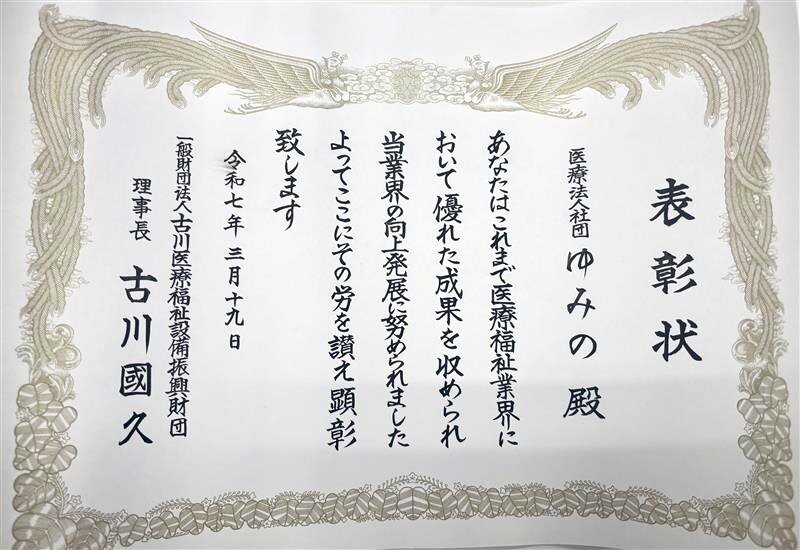 表彰状
医療法人社団 ゆみの 殿
あなたはこれまで医療福祉業界に
おいて優れた成果を収められ
当業界の向上発展に努められました
よってここにその労を讃え顕彰
致します
令和七年 三月十九日
一般財団法人古川医療福祉設備振興財団
理事長 古川國久